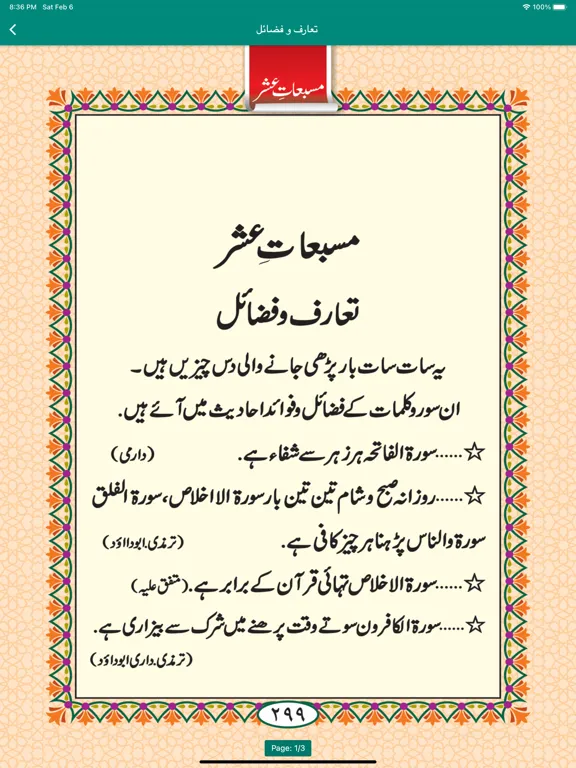 8:36 PM Sat Feb 6 100%
تعارف و فضائل
مسبعاتِ عشر
مسبعاتِ عشر
تعارف و فضائل
یہ سات سات بار پڑھی جانے والی دس چیزیں ہیں ۔
ان سور و کلمات کے فضائل و فوائد احادیث میں آئے ہیں.
☆......سورۃ الفاتحہ ہر زہر سے شفاء ہے. (دارمی)
☆......روزانہ صبح و شام تین تین بار سورۃ الاخلاص، سورۃ الفلق
سورۃ والناس پڑہنا ہر چیز کافی ہے. (ترمذی.ابوداؤد)
☆......سورۃ الاخلاص تہائی قرآن کے برابر ہے. (متفق علیہ)
☆......سورۃ الکافرون سوتے وقت پرھنے میں شرک سے بیزاری ہے.
(ترمذی.داری ابوداؤد)
۲۹۹
Page: 1/3